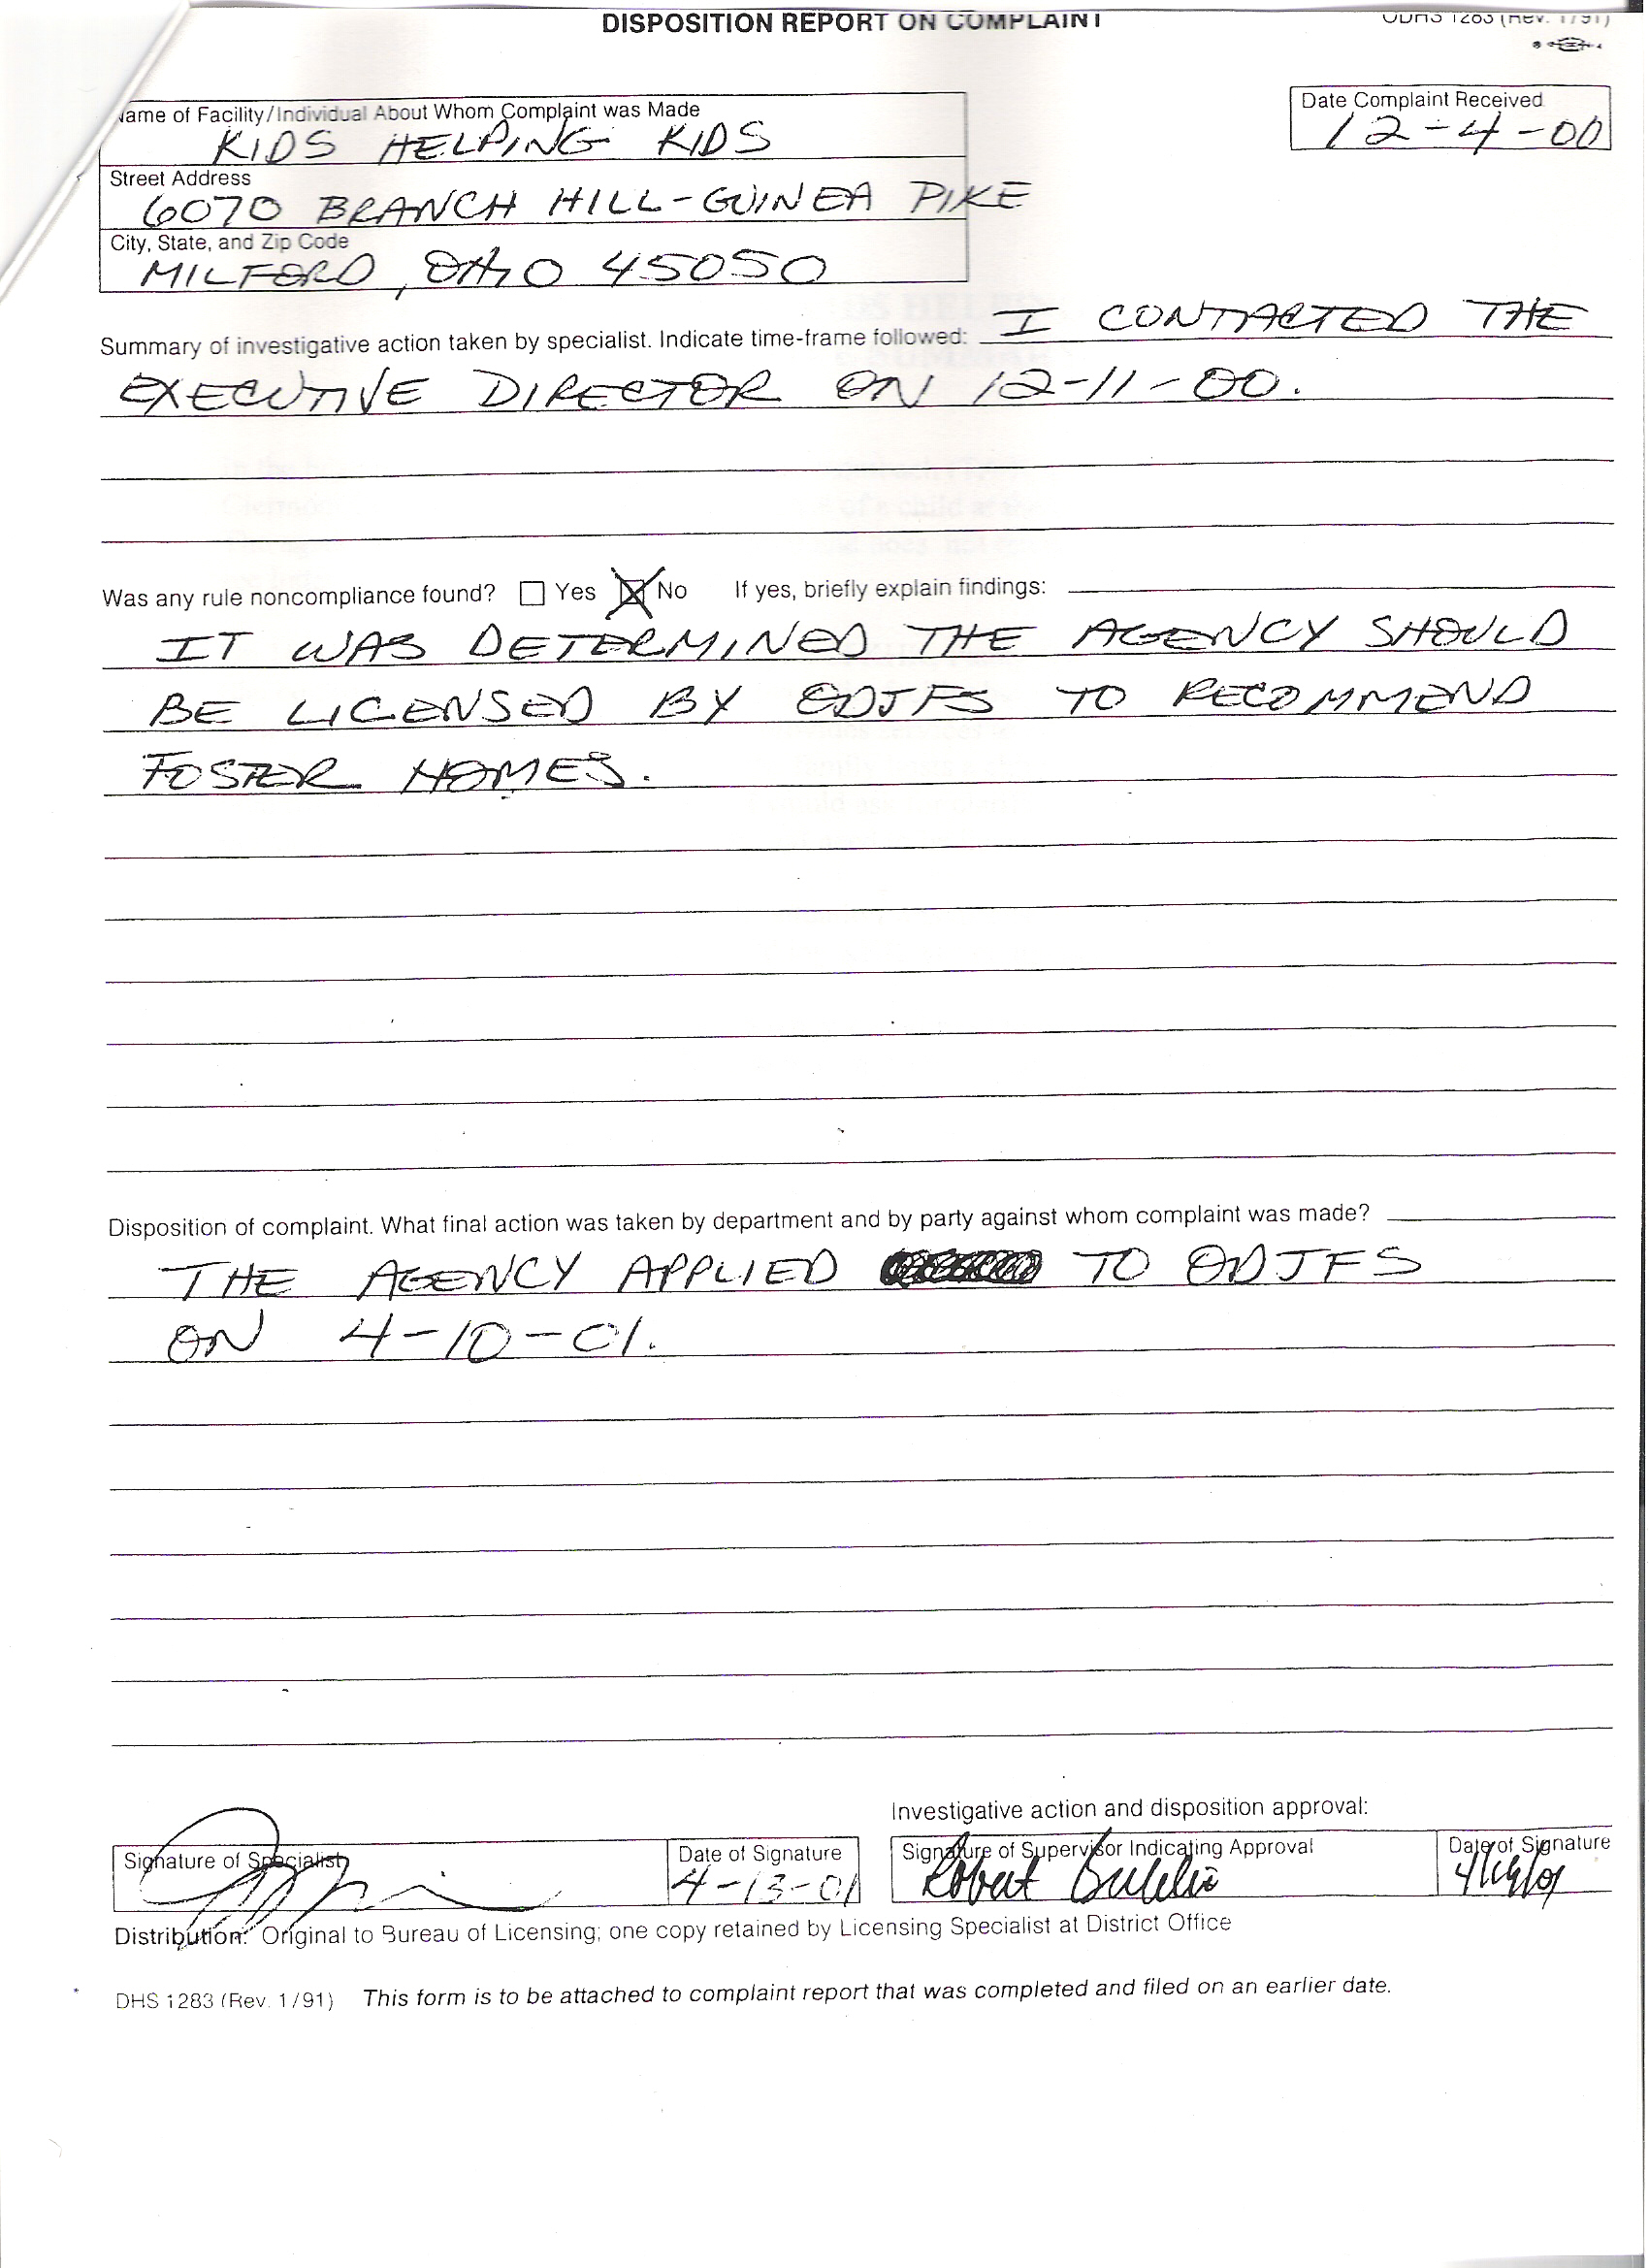 DISPOSITION REPORT ON COMPLAINT
ODHS 1283 (Rev. 1/91)
Name of Facility/Individual About Whom Complaint was Made
KIDS HELPING KIDS
Date Complaint Received
12-4-00
Street Address
6070 BRANCH HILL-GUINEA PIKE
City, State, and Zip Code
MILFORD, OHIO 45050
Summary of investigative action taken by specialist. Indicate time-frame followed: I CONTACTED THE
EXECUTIVE DIRECTOR ON 12-11-00.
Was any rule noncompliance found? Yes No If yes, briefly explain findings:
IT WAS DETERMINED THE AGENCY SHOULD
BE LICENSED BY ODJFS TO RECOMMEND
FOSTER HOMES.
Disposition of complaint. What final action was taken by department and by party against whom complaint was made?
THE AGENCY APPLIED TO ODJFS
ON 4-10-01.
Investigative action and disposition approval:
Signature of Specialist
Date of Signature
4-13-01
Signature of Supervisor Indicating Approval
Robert
Date of Signature
Distribution: Original to Bureau of Licensing; one copy retained by Licensing Specialist at District Office
DHS 1283 (Rev. 1/91) This form is to be attached to complaint report that was completed and filed on an earlier date.